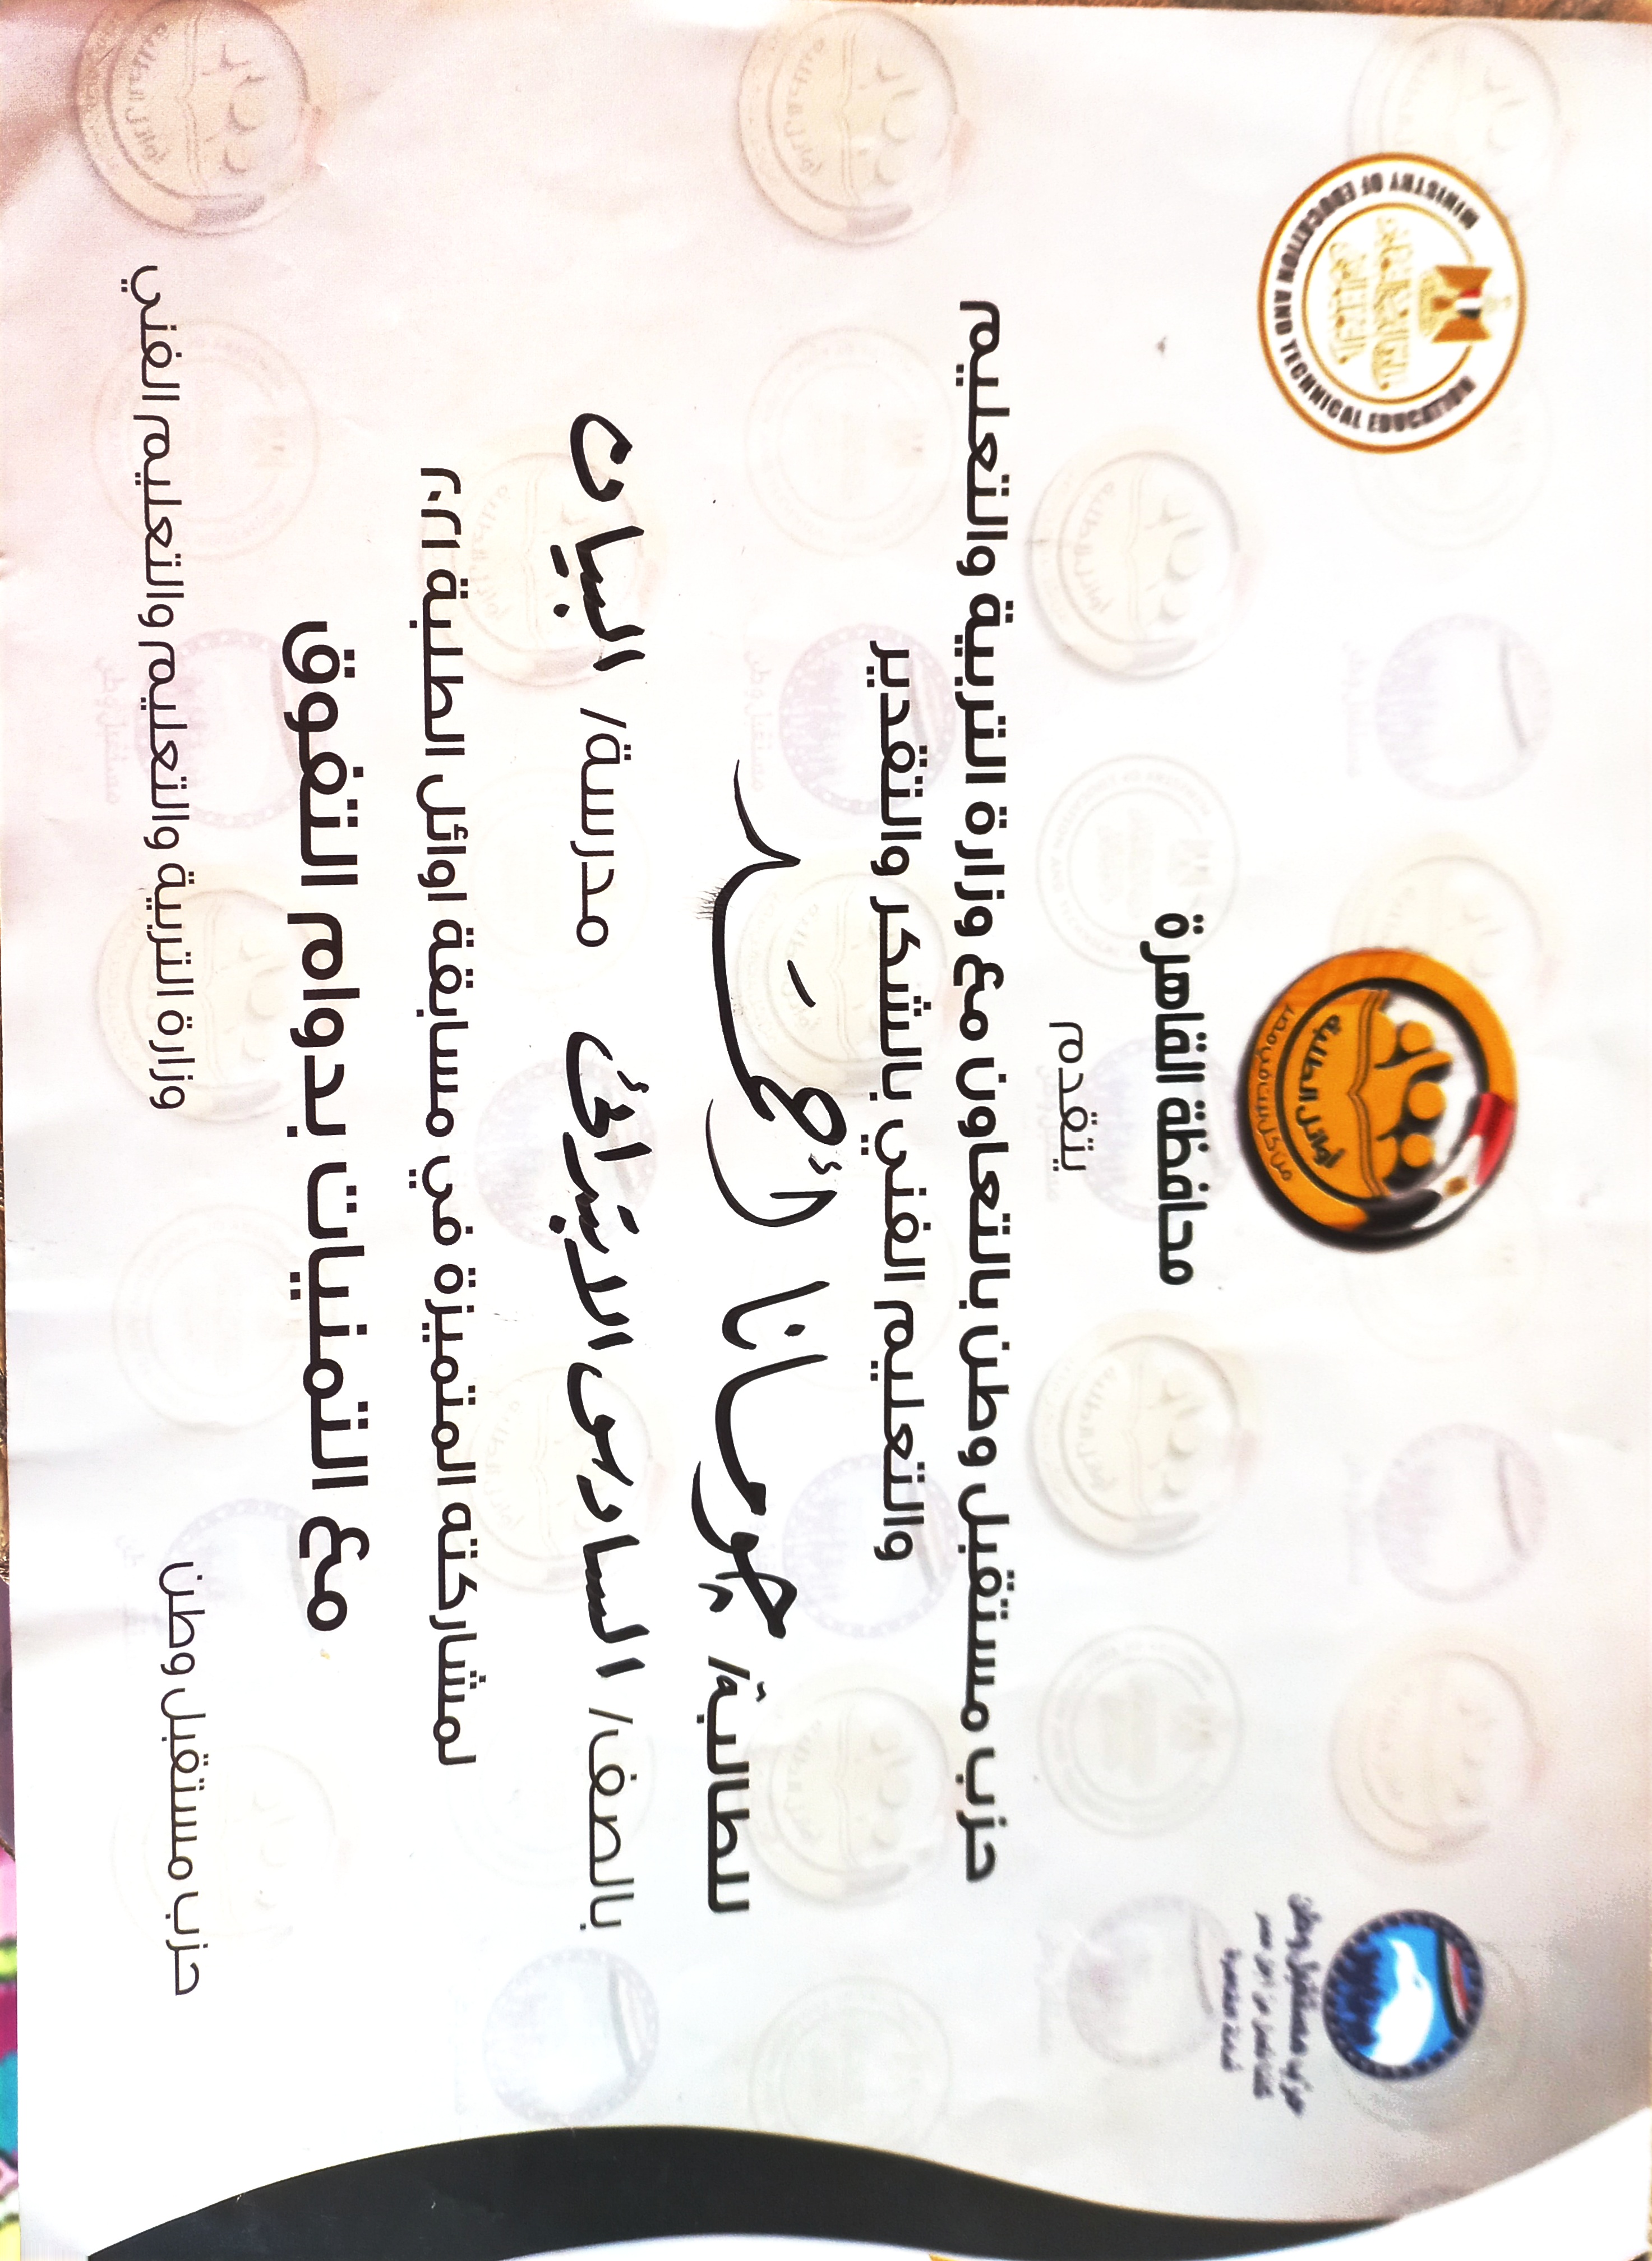 MINISTRY OF EDUCATION AND TECHNICAL EDUCATION
أوائل الطلبة
حزب مستقبل وطن
محافظة القاهرة
يتقدم
حزب مستقبل وطن بالتعاون مع وزارة التربية والتعليم
والتعليم الفني بالشكر والتقدير
للطالبة/ جومانا
بالصف/ السادس الابتدائى مدرسة/ البيان
لمشاركته المتميزة في مسابقة اوائل الطلبة ٢٠٢١
مع التمنيات بدوام التفوق
حزب مستقبل وطن وزارة التربية والتعليم والتعليم الفني